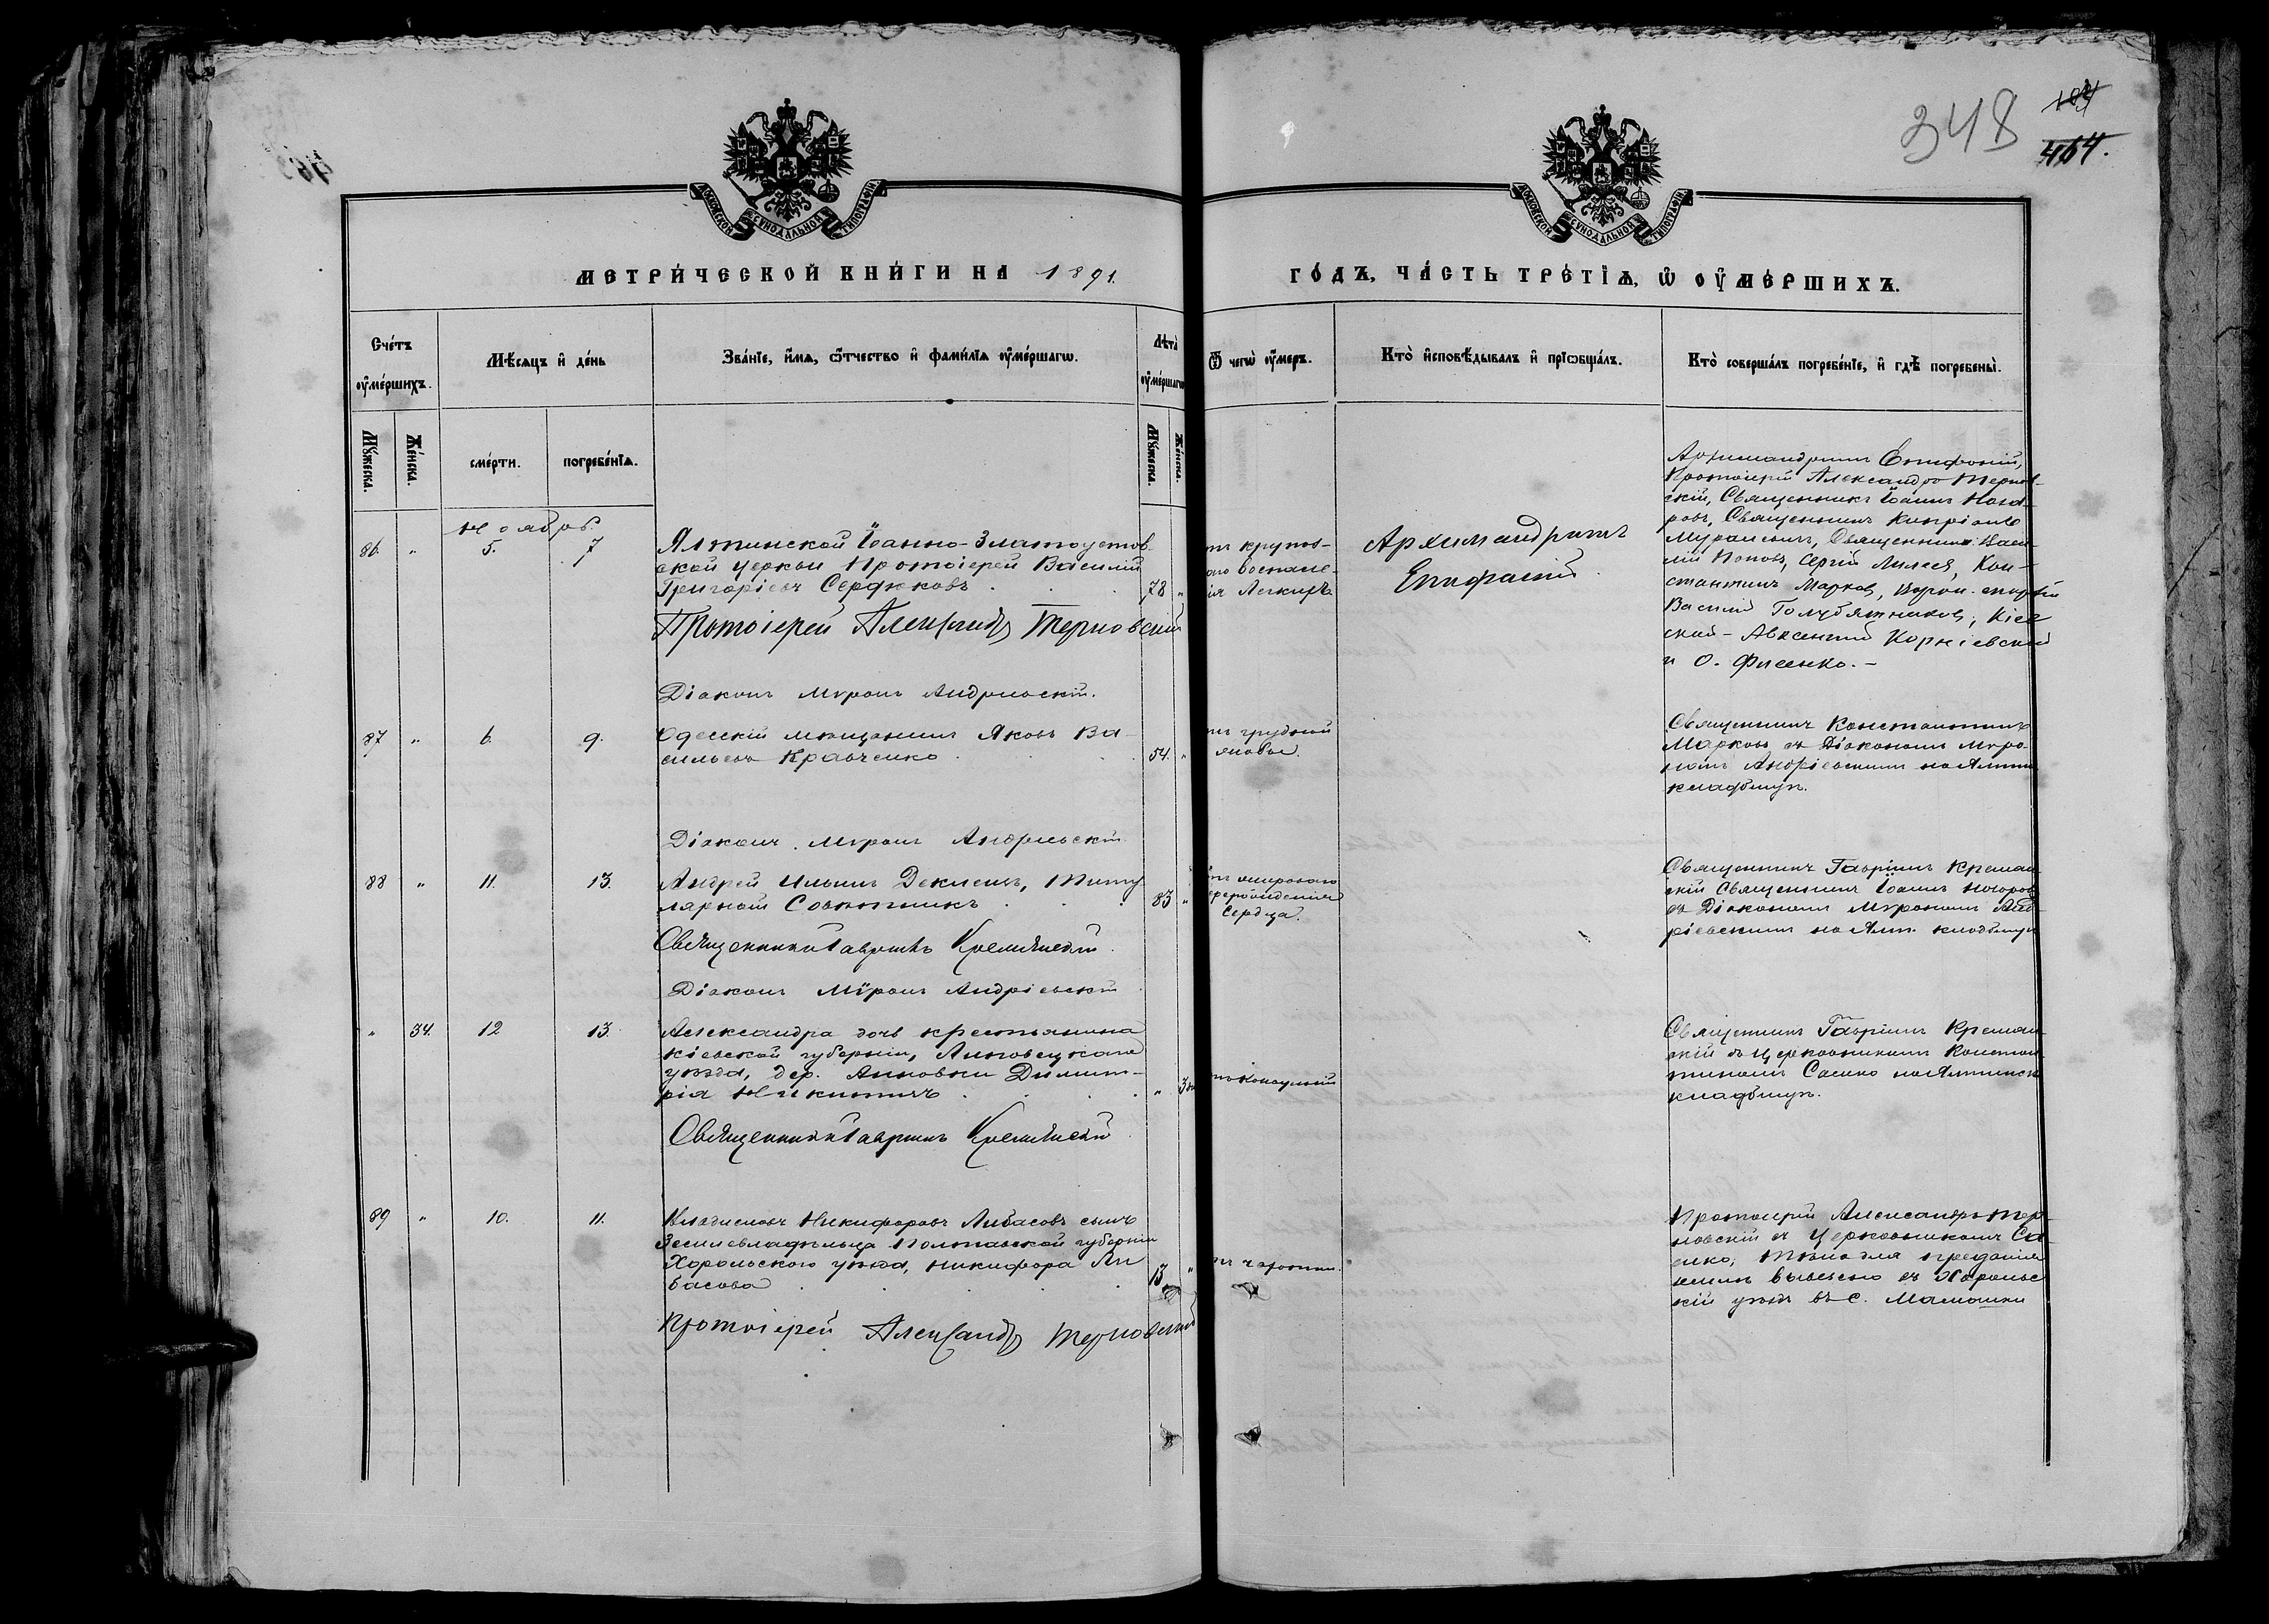 348
464.
МОСКОВСКОЙ СУНОДАЛЬНОЙ ТИПОГРАФІИ
МОСКОВСКОЙ СУНОДАЛЬНОЙ ТИПОГРАФІИ
МЕТРИ́ЧЕСКОЙ КНИ́ГИ НА 1891.
ГО́ДЪ, ЧА́СТЬ ТРЕ́ТІѦ, Ѡ҆ ОУ҆МЕ́РШИХЪ.
Сче́тъ оу҆ме́ршихъ.
Мѣ́сяцъ и҆ де́нь
Зва́нїе, и҆́мѧ, ѻ҆́тчество и҆ фами́лїѧ оу҆ме́ршагѡ.
Лѣ́та оу҆ме́ршагѡ
Ѿ чегѡ̀ оу҆́меръ.
Кто̀ и҆сповѣ́дывалъ и҆ прїѡбща́лъ.
Кто̀ соверша́лъ погребе́нїе, и҆ гдѣ̀ погребены̀.
Мꙋ́жеска.
Же́нска.
сме́рти.
погребе́нїѧ.
Мꙋ́жеска.
Же́нска.
Ноябрь.
86. " 5. 7
Ялтинской Іоанно-Златоустов-
ской церкви Протоіерей Василій
Григоріевъ Сердюковъ . . . 78 "
Протоіерей Александръ Терновскій
Діаконъ Миронъ Андріевскій.
отъ крупоз-
наго воспале-
нія легкихъ
Архимандритъ
Епифаній.
Архимандритъ Епифаній,
Протоіерей Александръ Тернов-
скій, Священникъ Іоаннъ
Священникъ Кипріанъ
Священники Васи-
лій Поповъ, Сергій Кон-
стантинъ Марковъ,
Василій Голубятниковъ, Кіев-
скій - Авксентій Корніевскій
и О. Фисенко. -
87 " 6. 9.
Одесскій мѣщанинъ Яковъ Ва-
сильевъ Кравченко . . . 54. "
Діаконъ Миронъ Андріевскій
отъ грудной
жабы.
Священникъ Константинъ
Марковъ съ Діакономъ Миро-
номъ Андріевскимъ на Ялтин
кладбищѣ.
88 " 11. 13.
Андрей Ильинъ Титу-
лярный Совѣтникъ . . 83 "
Священникъ Гавріилъ Кремянскій
Діаконъ Миронъ Андріевскій
отъ жироваго
перерожденія
Сердца.
Священникъ Гавріилъ Кремян-
скій Священникъ Іоаннъ
съ Діакономъ Мирономъ Анд-
ріевскимъ на Ялт. кладбищѣ
" 34. 12 13.
Александра дочь крестьянина
Кіевской губерніи, Липовецкаго
уѣзда, дер. Анновки Димит-
рія Никитичъ . . . "
Священникъ Гавріилъ Кремянскій
Священникъ Гавріилъ Кремян-
скій съ Церковникомъ Констан-
тиномъ Саенко на Ялтинск
кладбищѣ.
89 " 10. 11.
Владиславъ Никифоровъ Либасовъ сынъ
Землевладѣльца Полтавской губерніи
Хорольскаго уѣзда, Никифора Ли-
басова . . . . 13 "
Протоіерей Александръ Терновскій
отъ чахотки.
Протоіерей Александръ Тер-
новскій съ Церковникомъ Са-
енко, тѣло для преданія
землѣ вывезено въ Хороль-
скій уѣздъ въ с. Мамошки